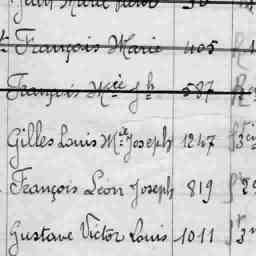 François Marie 405
François Mie Jh 587
Gilles Louis Mie Joseph 1247
François Léon Joseph 819
Gustave Victor Louis 1011